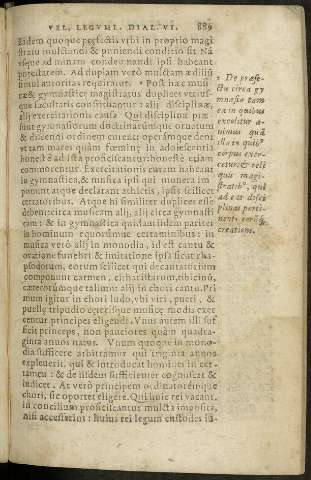 VEL LEGVM. DIAL. VI. 889
Eidem quoque præfecti, vrbi in proprio magi
stratu mulctandi & puniendi conditio sit. Nā
vsque ad minam condemnandi ipsi habeant
potestatem. Ad duplam verò mulctam ædiliū
simul autoritas requiratur. Post hæc musi
cæ & gymnasticæ magistratus duplices vtrius-
que facultatis constituantur: alij disciplinæ,
alij exercitationis causa. Qui disciplinæ præ-
sunt gymnasiorum doctrinarúmque ornatum
& dicendi ordinem curent: operámque dent
vt tam mares quàm foeminæ in adolescentia
honestè ad ista proficiscantur: honestè etiam
commorentur. Exercitationis curam habeāt
in gymnastica, & musica ipsi qui munera im
ponunt atque declarant athletis, ipsis scilicet
certatoribus. Atque hi similiter duplices esse
debent: circa musicam alij, alij circa gymnasti
cam: & in gymnastica quidam iidem pariter
in hominum equorúmque certaminibus: in
musica verò alij in monodia, id est cantu &
oratione funebri & imitatione ipsi sicut rha-
psodorum, eorum scilicet qui decantatorium
componunt carmen, citharistarum, tibicinū,
cæterorúmque talium: alij in chori cantu. Pri
mum igitur in chori ludo, vbi viri, pueri, &
puellæ tripudio cæterisque musicæ modis exer
centur principes eligendi. Vnus autem illi suf
ficit princeps, non pauciores quàm quadra-
ginta annos natus. Vnum quoque in mono-
dia sufficere arbitramur qui triginta annos
expleuerit, qui & introducat homines in cer-
tamen: & de iisdem sufficienter cognoscat &
iudicet. At verò principem ordinatorémque
chori, sic oportet eligere. Qui huic rei vacant,
in concilium proficiscantur mulcta imposita,
nisi accesserint: huius rei legum custodes iu-
De præfe-
cta circa gy
mnasia tam
ea in quibus
excolitur a-
nimus quā
illa in quib9
corpus exer-
cetur: & reli
quis magi-
stratib9, qui
ad eas disci
plinas perti-
nent, eorūq́;
creatione.